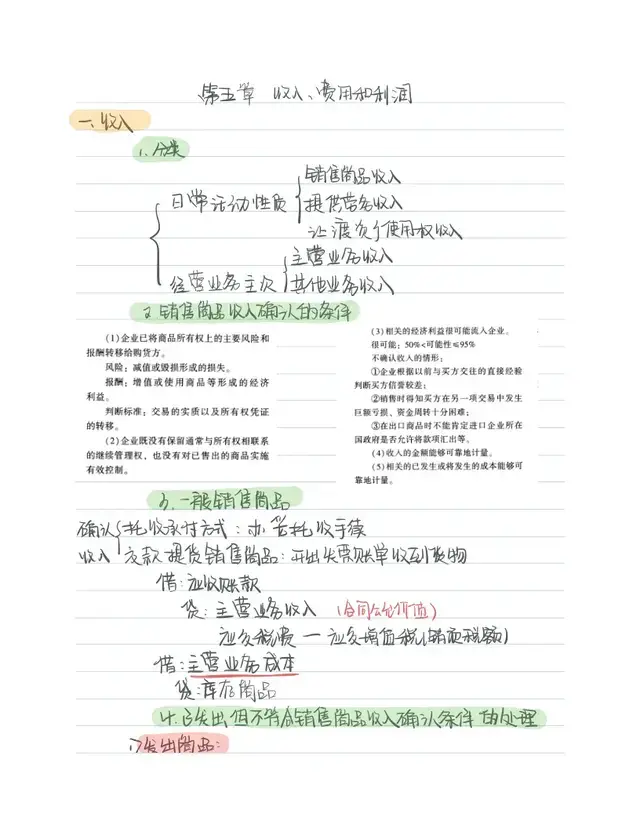 第五章 收入、费用和利润
一、收入
1、分类
日常活动性质
销售商品收入
提供劳务收入
让渡资产使用权收入
经营业务主次
主营业务收入
其他业务收入
2、销售商品收入确认的条件
(1)企业已将商品所有权上的主要风险和
报酬转移给购货方。
风险：减值或毁损形成的损失。
报酬：增值或使用商品等形成的经济
利益。
判断标准：交易的实质以及所有权凭证
的转移。
(2)企业既没有保留通常与所有权相联系
的继续管理权，也没有对已售出的商品实施
有效控制。
(3)相关的经济利益很可能流入企业。
很可能：50%<可能性≤95%
不确认收入的情形：
①企业根据以前与买方交往的直接经验
判断买方信誉较差；
②销售时得知买方在另一项交易中发生
巨额亏损、资金周转十分困难；
③在出口商品时不能肯定进口企业所在
国政府是否允许将款项汇出等。
(4)收入的金额能够可靠地计量。
(5)相关的已发生或将发生的成本能够可
靠地计量。
3、一般销售商品
确认收入
托收承付方式：办妥托收手续
交款提货销售商品：开出发票账单收到货物
借：应收账款
贷：主营业务收入 (合同公允价值)
应交税费 — 应交增值税(销项税额)
借：主营业务成本
贷：库存商品
4、已发出但不符合销售商品收入确认条件的处理
1)发出商品：